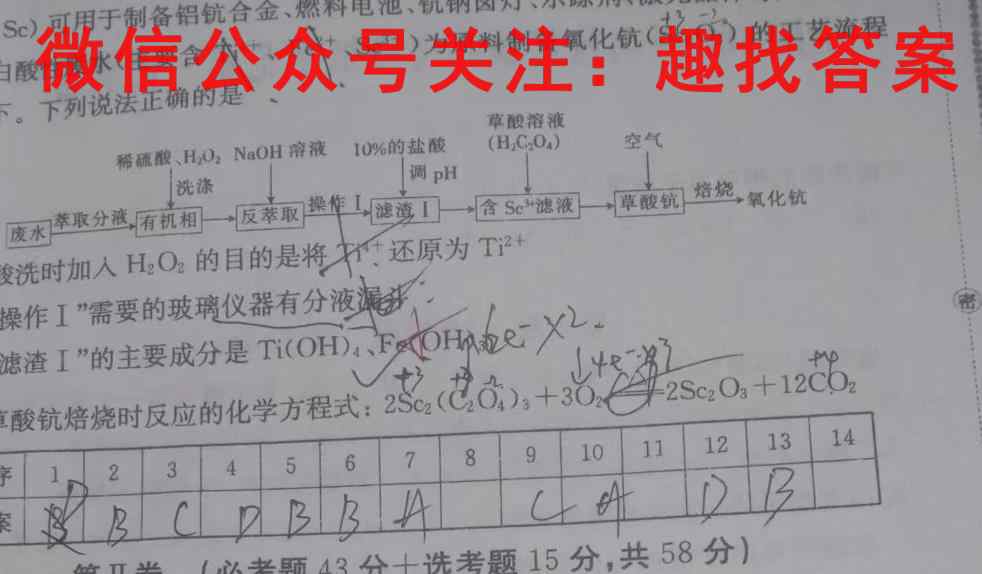 Sc)可用于制备铝钪合金、燃料电池、钪钠卤灯、
为原料制备氧化钪(
)的工艺流程
微信公众号关注：趣找答案
下列说法正确的是
草酸溶液
稀硫酸、H₂O₂ NaOH 溶液 10%的盐酸 (H₂C₂O₄) 空气
洗涤 调 pH
废水 萃取分液 有机相 反萃取 操作Ⅰ 滤渣Ⅰ 含 Sc³⁺滤液 草酸钪 焙烧 氧化钪
酸洗时加入 H₂O₂ 的目的是将 Ti⁴⁺还原为 Ti²⁺
操作Ⅰ”需要的玻璃仪器有分液漏斗
滤渣Ⅰ”的主要成分是 Ti(OH)₄、Fe(OH)
6e⁻ ×2
草酸钪焙烧时反应的化学方程式：2Sc₂(C₂O₄)₃＋3O₂ 2Sc₂O₃＋12CO₂
密
序 1 2 3 4 5 6 7 8 9 10 11 12 13 14
案 B B C D B B A C A D B
第Ⅱ卷 (必考题 43 分＋选考题 15 分，共 58 分)